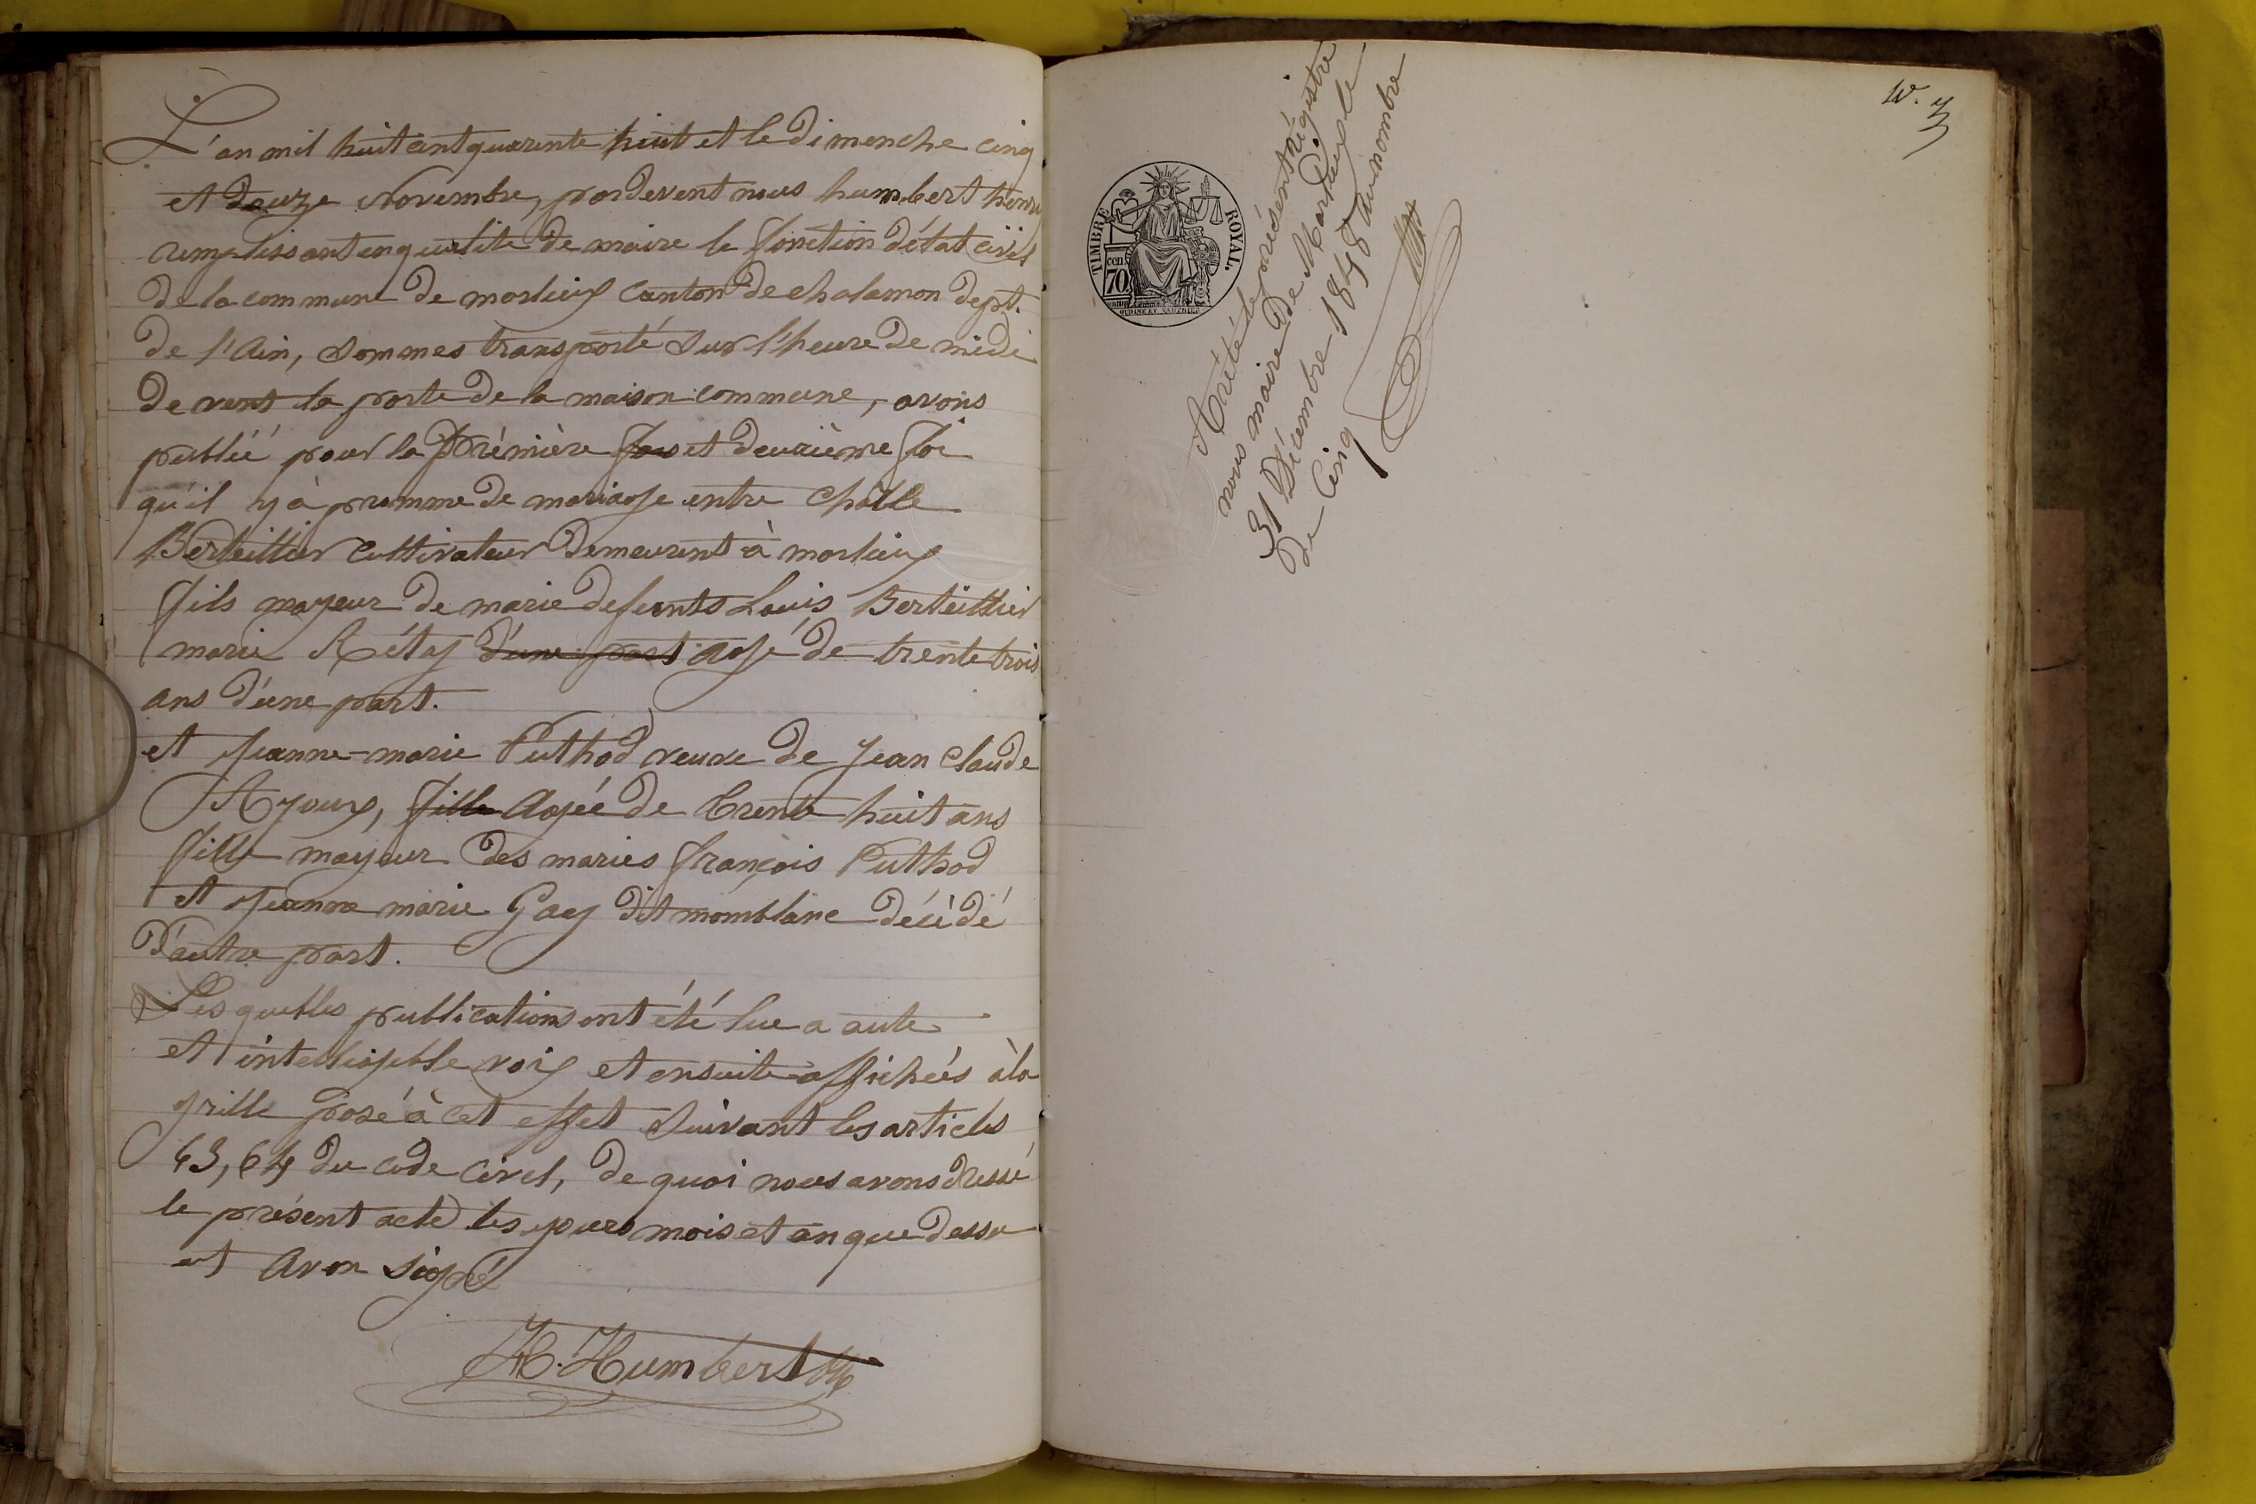 L'an mil huit cent quarente huit et le dimenche cinq
et douze Novembre, pordevent nous humbert henri
remplissant en qualite de maire le fonction d'état civil
de la commune de marlieux canton de chalamon dept.
de l'Ain, sommes transporté sur l'heure de midi
devent la porte de la maison commune, avons
publié pour la prémière fois et deuxième foi
qu'il y à promme de mariage entre
Berteillier cultivateur demeurent à marlieux
fils mayeur de marie defeunts Louis Berteillier
marie Rétey d'une part agé de trente trois
ans d'une part.
et Jeanne-marie Puthod veuve de Jean Claude
Ajoux, fille Agée de trente huit ans
fille mayeur des maries françois Puthod
et Jeanne marie Gay dit momblanc décédé
d'autre part.
Les quelles publications ont été lue a aute
et intelligeble voix et ensuite affichées à la
grille posé à cet effet suivant les articles
63, 64 du code civel, de quoi nous avons dressé
le présent acte les jours mois et an que dessu
et avon signé
H. Humbert
TIMBRE ROYAL.
70 cen
Arété le présent régistre
nous maire de Marlieux le
31 Décembre 1848 au nombre
de Cinq